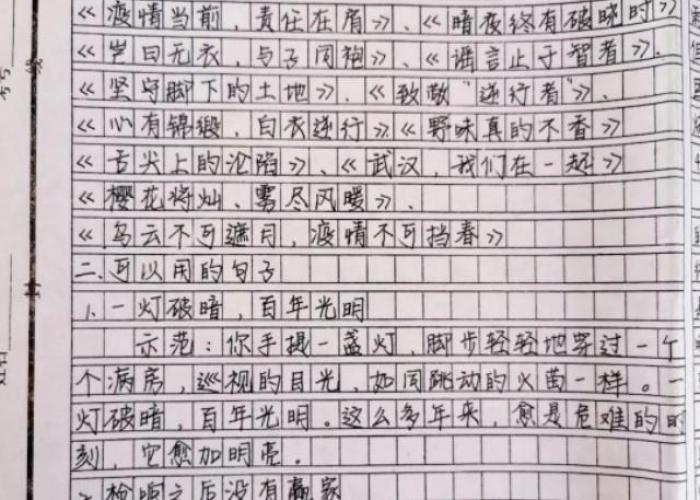 《疫情当前，责任在肩》、《暗夜终有破晓时》、
《岂曰无衣，与子同袍》、《谣言止于智者》、
《坚守脚下的土地》、《致敬“逆行者”》、
《心有锦缎，白衣逆行》《野味真的不香》
《舌尖上的沦陷》、《武汉，我们在一起》
《樱花将灿、雾尽风暖》、
《乌云不可遮月，疫情不可挡春》
二、可以用的句子
1、一灯破暗，百年光明
示范：你手提一盏灯，脚步轻轻地穿过一个
个病房，巡视的目光，如同跳动的火苗一样。一
灯破暗，百年光明。这么多年来，愈是危难的时
刻，它愈加明亮。
之后没有赢家